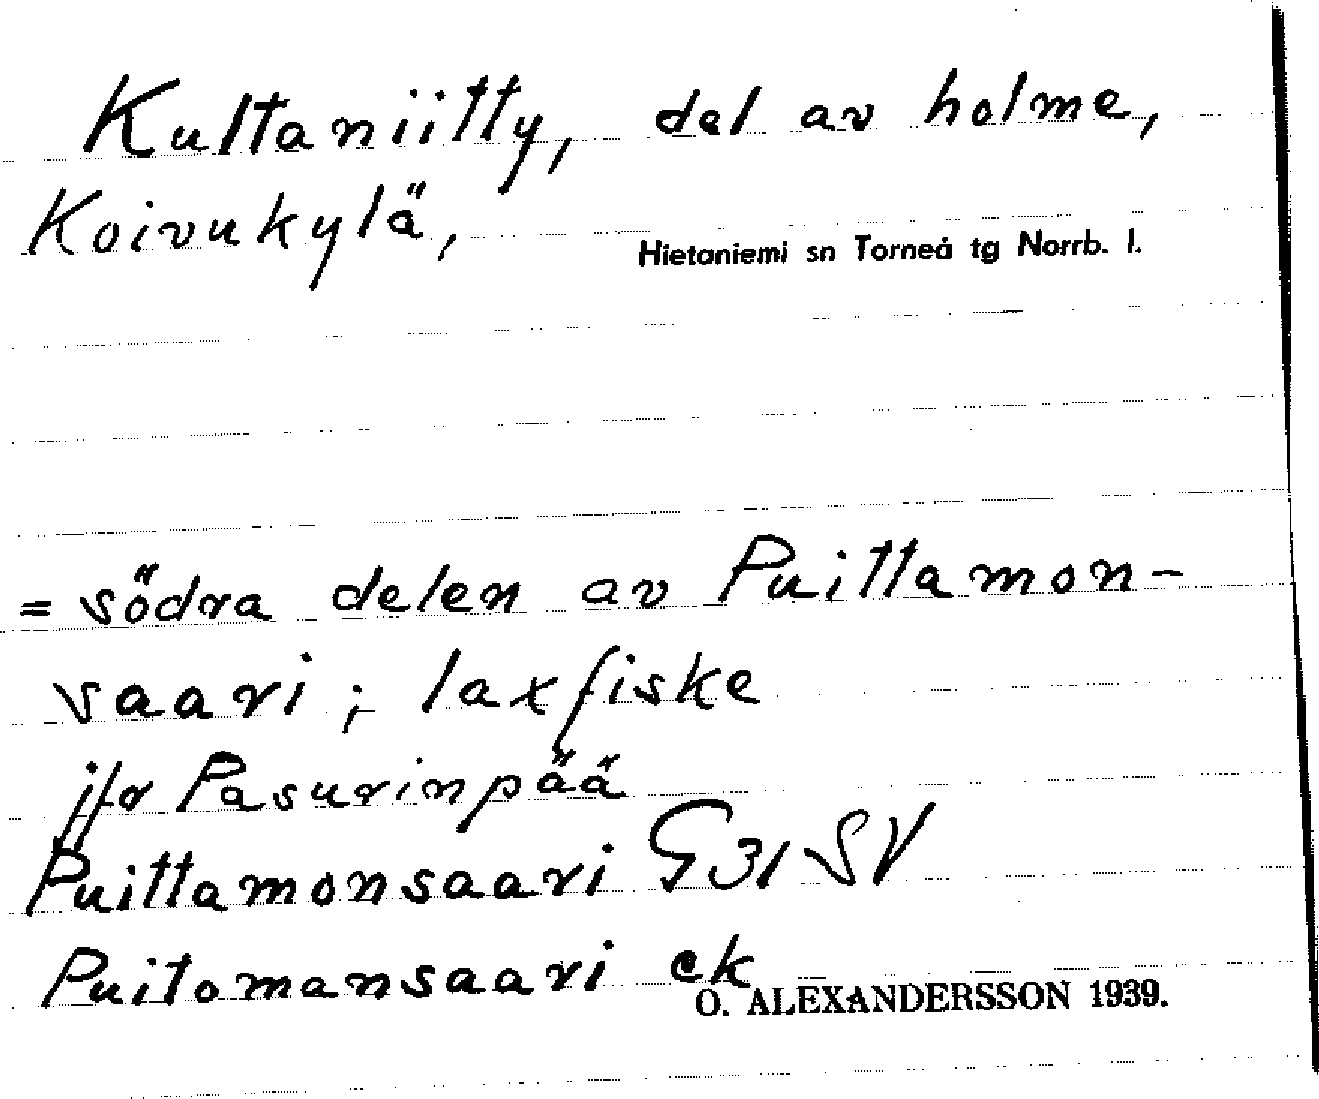 Kultaniitty, del av holme,
Koivukylä,
Hietaniemi sn Torneå tg Norrb. l.
= södra delen av Puittamon-
saari; laxfiske
jfr Pasurinpää
Puittamonsaari G 31 SV
Puitomansaari ek
O. ALEXANDERSSON 1939.